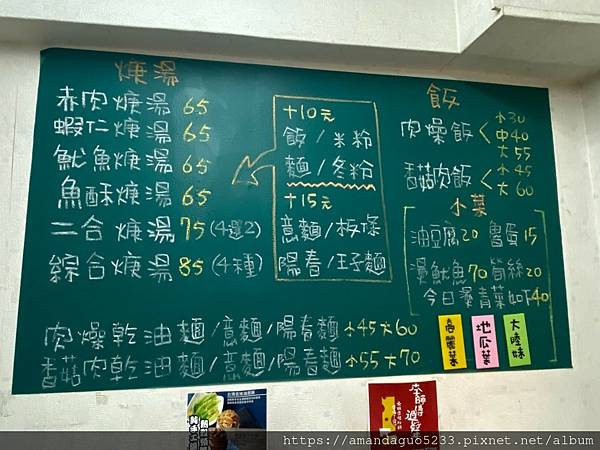 焿湯
赤肉焿湯 65
蝦仁焿湯 65
魷魚焿湯 65
魚酥焿湯 65
二合焿湯 75 (4選2)
綜合焿湯 85 (4種)
+10元
飯/米粉
麵/冬粉
+15元
意麵/板條
陽春/王子麵
飯
肉燥飯 小30
中40
大55
香菇肉飯 小45
大60
小菜
油豆腐20 魯蛋15
燙魷魚70 筍絲20
今日燙青菜如下40
高麗菜
地瓜葉
大陸妹
肉燥乾油麵/意麵/陽春麵 小45大60
香菇肉乾油麵/意麵/陽春麵 小55大70
https://amandaguo5233.pixnet.net/album